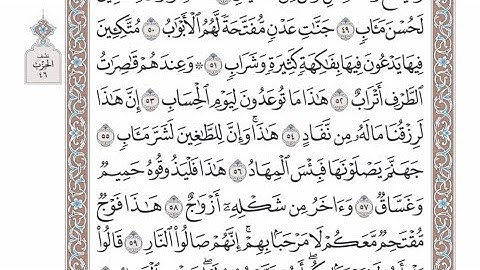 لَحُسْنَ مَـَٔابٍ ٤٩ جَنَّٰتِ عَدْنٍ مُّفَتَّحَةً لَّهُمُ ٱلْأَبْوَٰبُ ٥٠ مُتَّكِـِٔينَ
فِيهَا يَدْعُونَ فِيهَا بِفَٰكِهَةٍ كَثِيرَةٍ وَشَرَابٍ ٥١ ۞ وَعِندَهُمْ قَٰصِرَٰتُ
نصف الحزب ٤٦
ٱلطَّرْفِ أَتْرَابٌ ٥٢ هَٰذَا مَا تُوعَدُونَ لِيَوْمِ ٱلْحِسَابِ ٥٣ إِنَّ هَٰذَا
لَرِزْقُنَا مَا لَهُۥ مِن نَّفَادٍ ٥٤ هَٰذَا ۚ وَإِنَّ لِلطَّٰغِينَ لَشَرَّ مَـَٔابٍ ٥٥
جَهَنَّمَ يَصْلَوْنَهَا فَبِئْسَ ٱلْمِهَادُ ٥٦ هَٰذَا فَلْيَذُوقُوهُ حَمِيمٌ
وَغَسَّاقٌ ٥٧ وَءَاخَرُ مِن شَكْلِهِۦٓ أَزْوَٰجٌ ٥٨ هَٰذَا فَوْجٌ
مُّقْتَحِمٌ مَّعَكُمْ لَا مَرْحَبًۢا بِهِمْ ۚ إِنَّهُمْ صَالُوا۟ ٱلنَّارِ ٥٩ قَالُوا۟